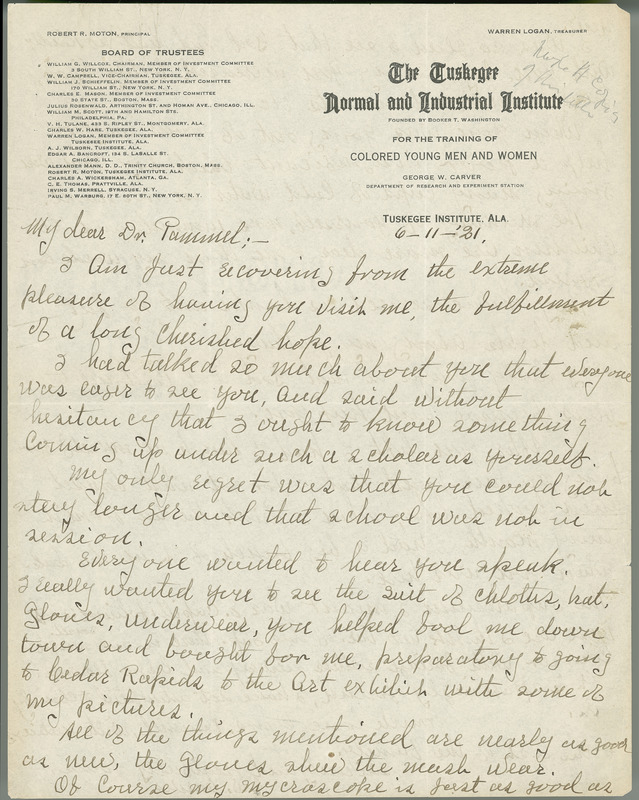 ROBERT R. MOTON, PRINCIPAL
WARREN LOGAN, TREASURER
BOARD OF TRUSTEES
WILLIAM G. WILLCOX, CHAIRMAN, MEMBER OF INVESTMENT COMMITTEE
3 SOUTH WILLIAM ST., NEW YORK, N. Y.
W. W. CAMPBELL, VICE-CHAIRMAN, TUSKEGEE, ALA.
WILLIAM J. SCHIEFFELIN, MEMBER OF INVESTMENT COMMITTEE
170 WILLIAM ST., NEW YORK, N. Y.
CHARLES E. MASON, MEMBER OF INVESTMENT COMMITTEE
30 STATE ST., BOSTON, MASS.
JULIUS ROSENWALD, ARTHINGTON ST. AND HOMAN AVE., CHICAGO, ILL.
WILLIAM M. SCOTT, 19TH AND HAMILTON STS.
PHILADELPHIA, PA.
V. H. TULANE, 423 S. RIPLEY ST., MONTGOMERY, ALA.
CHARLES W. HARE, TUSKEGEE, ALA.
WARREN LOGAN, MEMBER OF INVESTMENT COMMITTEE
TUSKEGEE INSTITUTE, ALA.
A. J. WILBORN, TUSKEGEE, ALA.
EDGAR A. BANCROFT, 134 S. LASALLE ST.
CHICAGO, ILL.
ALEXANDER MANN, D. D., TRINITY CHURCH, BOSTON, MASS.
ROBERT R. MOTON, TUSKEGEE INSTITUTE, ALA.
CHARLES A. WICKERSHAM, ATLANTA, GA.
C. E. THOMAS, PRATTVILLE, ALA.
IRVING S. MERRELL, SYRACUSE, N. Y.
PAUL M. WARBURG, 17 E. 80TH ST., NEW YORK, N. Y.
The Tuskegee
Normal and Industrial Institute
FOUNDED BY BOOKER T. WASHINGTON
FOR THE TRAINING OF
COLORED YOUNG MEN AND WOMEN
GEORGE W. CARVER
DEPARTMENT OF RESEARCH AND EXPERIMENT STATION
TUSKEGEE INSTITUTE, ALA.
6-11-'21.
My dear Dr. Pammel:-
I Am just recovering from the extreme
pleasure of having you visit me, the fulfillment
of a long cherished hope.
I had talked so much about you that everyone
was eager to see you, and said without
hesitancy that I ought to know something
Coming up under such a scholar as yourself.
My only regret was that you could not
stay longer and that school was not in
session.
Everyone wanted to hear you speak.
I really wanted you to see the Suit of chloths, hat,
Gloves, underwear, you helped fool me down
town and bought for me, preparatory to going
to Cedar Rapids to the Art exhibit with some of
my pictures.
All of the things mentioned are nearly as good
as new, the Gloves show the most wear.
Of Course my mycroscope is just as good as